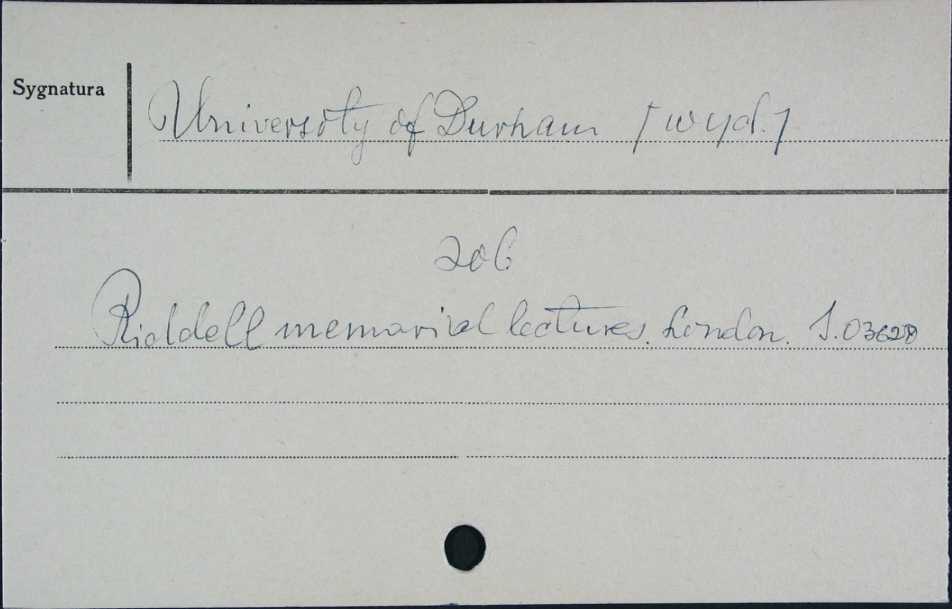 Sygnatura
University of Durham [wyd.]
zob
Riddell memorial lectures. London. S.03628